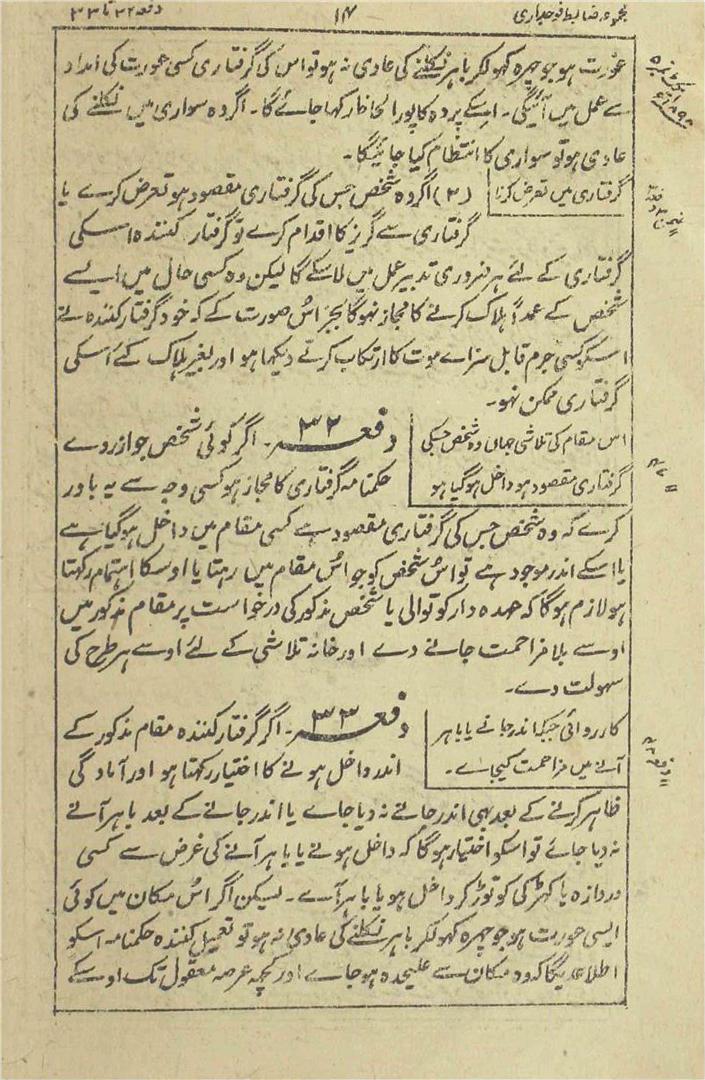 مجموعہ ضابطہ فوجداری
۱۷
دفعہ ۳۲ تا ۳۳
عورت ہو جو چہرہ کھولکر باہر نکلنے کی عادی نہ ہو تو اس کی گرفتاری کسی عورت کی امداد
سے عمل میں آئیگی۔ اسکے پردہ کا پورا لحاظ رکھا جائے گا۔ اگر وہ سواری میں نکلنے کی
عادی ہو تو سواری کا انتظام کیا جائیگا۔
گرفتاری میں تعرض کرنا
(۲) اگر وہ شخص جس کی گرفتاری مقصود ہو تعرض کرے یا
گرفتاری سے گریز کا اقدام کرے تو گرفتار کنندہ اسکی
گرفتاری کے لئے ہر ضروری تدبیر عمل میں لا سکے گا لیکن وہ کسی حال میں ایسے
شخص کے عمداً ہلاک کرنے کا مجاز نہوگا بجز اُس صورت کے کہ خود گرفتار کنندہ نے
اسکو کسی جرم قابل سزاے موت کا ارتکاب کرتے دیکھا ہو اور بغیر ہلاک کئے اسکی
گرفتاری ممکن نہو۔
اس مقام کی تلاشی جہاں وہ شخص جسکی
گرفتاری مقصود ہو داخل ہوگیا ہو
دفعہ ۳۲۔ اگر کوئی شخص جو ازروے
حکمنامہ گرفتاری کا مجاز ہو کسی وجہ سے یہ باور
کرے کہ وہ شخص جس کی گرفتاری مقصود ہے کسی مقام میں داخل ہوگیا ہے
یا اسکے اندر موجود ہے تو اُس شخص کو جو اُس مقام میں رہتا یا اوسکا اہتمام رکھتا
ہو لازم ہوگا کہ عہدہ دار کوتوالی یا شخص مذکور کی درخواست پر مقام مذکور میں
اوسے بلا مزاحمت جانے دے اور خانہ تلاشی کے لئے اوسے ہر طرح کی
سہولت دے۔
کارروائی جبکہ اندر جانے یا باہر
آنے میں مزاحمت کیجاے۔
دفعہ ۳۳۔ اگر گرفتار کنندہ مقام مذکور کے
اندر داخل ہونے کا اختیار رکھتا ہو اور آمادگی
ظاہر کرنے کے بعد بھی اندر جانے نہ دیا جاے یا اندر جانے کے بعد باہر آنے
نہ دیا جائے تو اسکو اختیار ہوگا کہ داخل ہونے یا باہر آنے کی غرض سے کسی
دروازہ یا کھڑکی کو توڑ کر داخل ہو یا باہر آے۔ لیکن اگر اُس مکان میں کوئی
ایسی عورت ہو جو چہرہ کھولکر باہر نکلنے کی عادی نہ ہو تو تعمیل کنندہ حکمنامہ اسکو
اطلاع دیگا کہ وہ مکان سے علیحدہ ہو جاے اور کچھ عرصہ معقول تک اوسکے